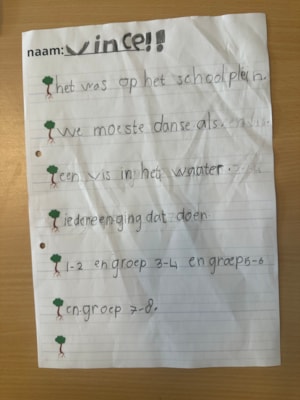 naam: vince!!
het was op het schoolplein.
we moeste danse als.
een vis in het wsnater.
iedereen ging dat doen.
1-2 en groep 3-4 en groep 5-6
en groep 7-8.